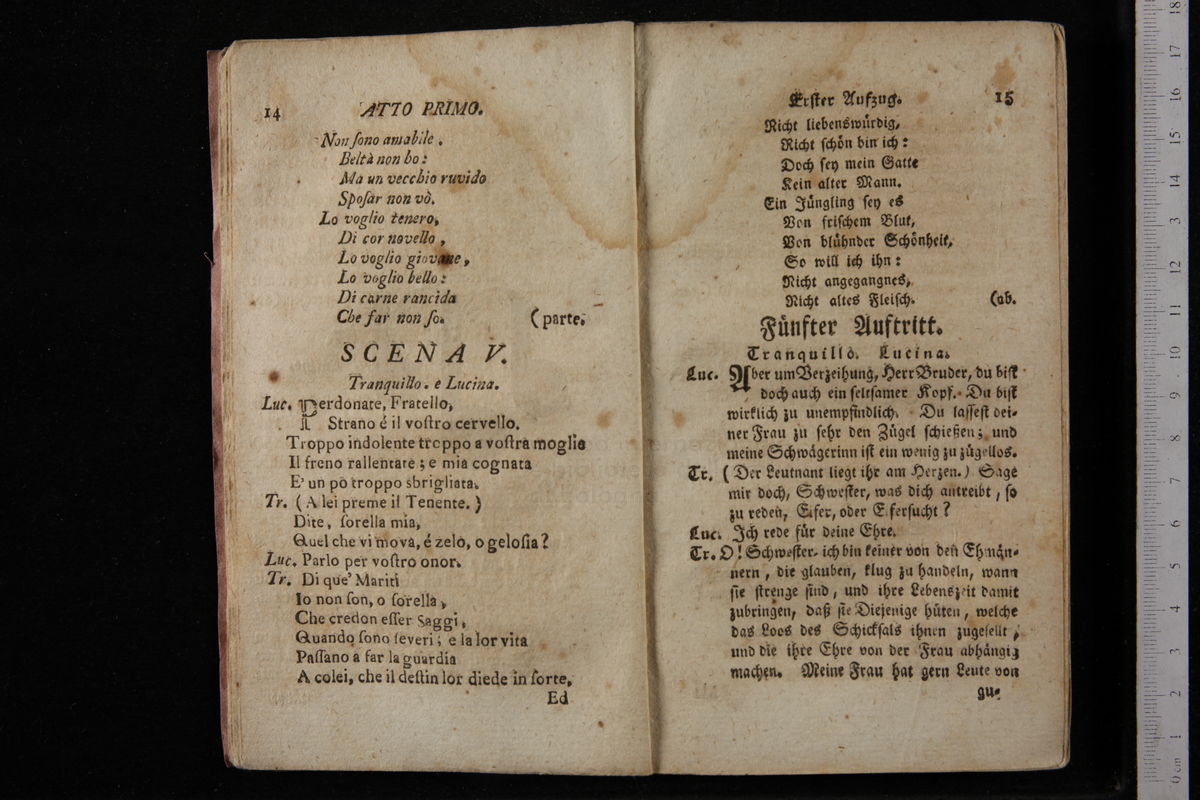 14 ATTO PRIMO.
Non ſono amabile.
Beltà non ho:
Ma un vecchio ruvido
Spoſar non vò.
Lo voglio tenero,
Di cor novello,
Lo voglio giovane,
Lo voglio bello:
Di carne rancida
Che far non ſo. (parte.
SCENA V.
Tranquillo. e Lucina.
Luc. Perdonate, Fratello,
Strano é il voſtro cervello.
Troppo indolente troppo a voſtra moglie
Il freno rallentare; e mia cognata
E' un pò troppo sbrigliata.
Tr. (A lei preme il Tenente.)
Dite, ſorella mia,
Quel che vi mova, é zelo, o geloſia?
Luc. Parlo per voſtro onor.
Tr. Di que' Mariti
Io non ſon, o ſorella,
Che credon eſſer Saggi,
Quando ſono ſeveri; e la lor vita
Paſſano a far la guardia
A colei, che il deſtin lor diede in ſorte,
Ed
Erſter Aufzug. 15
Nicht liebenswürdig,
Nicht ſchön bin ich:
Doch ſey mein Gatte
Kein alter Mann.
Ein Jüngling ſey es
Von friſchem Blut,
Von blühnder Schönheit,
So will ich ihn:
Nicht angegangnes,
Nicht altes Fleiſch. (ab.
Fünfter Auftritt.
Tranquillo. Lucina.
Luc. Aber um Verzeihung, Herr Bruder, du biſt
doch auch ein ſeltſamer Kopf. Du biſt
wirklich zu unempfindlich. Du laſſeſt dei-
ner Frau zu ſehr den Zügel ſchießen; und
meine Schwägerinn iſt ein wenig zu zügellos.
Tr. (Der Leutnant liegt ihr am Herzen.) Sage
mir doch, Schweſter, was dich antreibt, ſo
zu reden, Eifer, oder Eiferſucht?
Luc. Ich rede für deine Ehre.
Tr. O! Schweſter, ich bin keiner von den Ehmän-
nern, die glauben, klug zu handeln, wann
ſie ſtrenge ſind, und ihre Lebenszeit damit
zubringen, daß ſie Diejenige hüten, welche
das Loos des Schickſals ihnen zugeſellt,
und die ihre Ehre von der Frau abhängig
machen. Meine Frau hat gern Leute von
gu-
0 cm 1 2 3 4 5 6 7 8 9 10 11 12 13 14 15 16 17 18